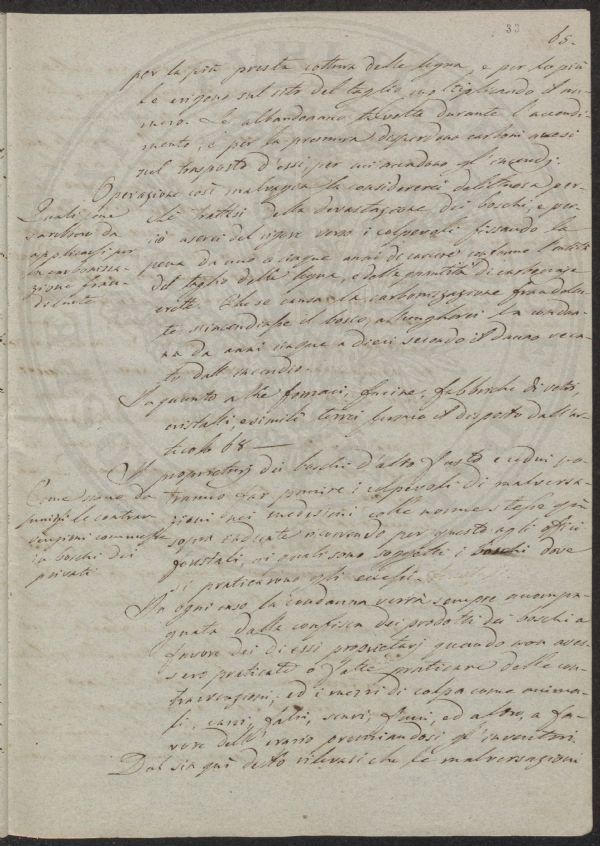 33
65.
per la più presta cottura delle legna, e per lo più
le erigono sul sito del taglio moltiplicando il nu-
mero. Le abbandonano talvolta durante l'accendi-
mento, e per la premura disperdono carboni accesi
nel trasporto d'essi, per cui accadono gl'incendj.
Operazione così malvagia la considererei delittuosa per-
chè trattasi della devastazione dei boschi, e per-
ciò userei del rigore verso i colpevoli fissando la
pena da uno a cinque anni di carcere
del taglio della legna, e dalla quantità di carbonaje
erette. Che se causa la carbonizazione fraudolen-
te s'incendiasse il bosco, allungherei la condan-
na da anni cinque a dieci secondo il danno reca-
to dall'incendio.
In quanto alle fornaci, fucine, fabbriche di vetri,
cristalli, e simili terrei fermo il disposto dall'ar-
ticolo 68.
Quali pene
sarebbero da
applicarsi per
la carbonizza-
zione frau-
dolente
I proprietarj dei boschi d'alto fusto e cedui po-
tranno far punire i colpevoli di malversa-
zioni nei medesimi colle norme stesse quì
sopra indicate ricorrendo per questo agli officj
forestali, ai quali sono soggetti i boschi dove
si praticarono gli eccessi.
Come siano da
punirsi le contrav-
venzioni commesse
in boschi dei
privati
In ogni caso la condanna verrà sempre accompa-
gnata dalla confisca dei prodotti dei boschi a
favore dei di essi proprietarj quando non aves-
sero praticate o fatte praticare delle con-
travvenzioni; ed i mezzi di colpa come anima-
li, carri, falci, scuri, funi, ed altro, a fa-
vore dell'erario premiandosi gl'inventori.
Dal sin quì detto rilevasi che le malversazioni